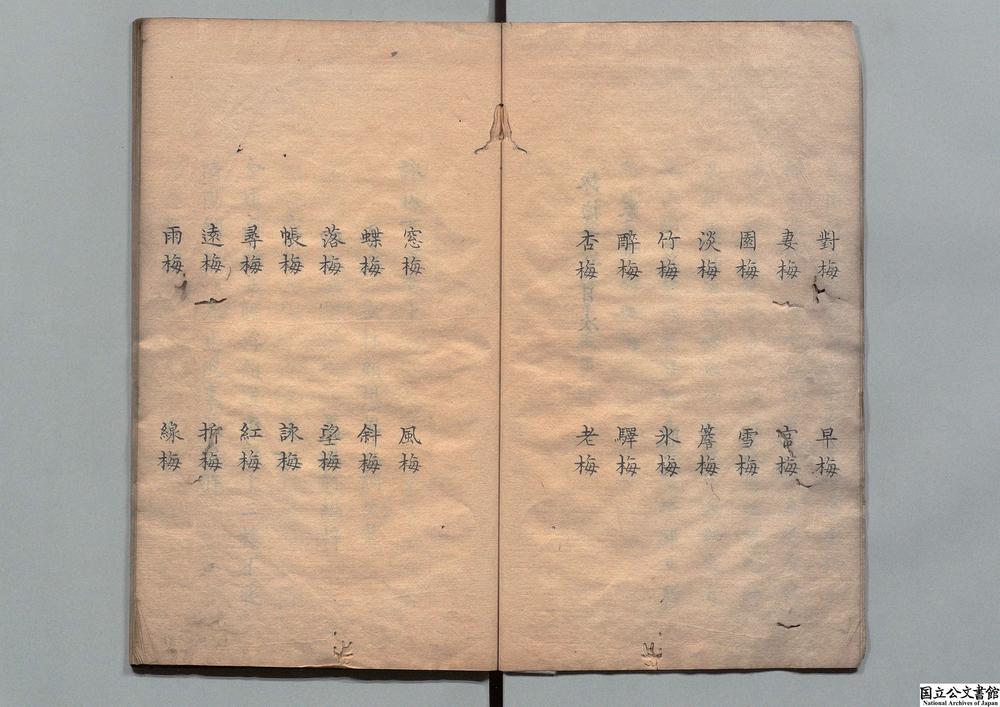 對梅 早梅
妻梅 宮梅
園梅 雪梅
淡梅 簷梅
竹梅 氷梅
醉梅 驛梅
杏梅 老梅
窓梅 風梅
蝶梅 斜梅
落梅 望梅
帳梅 詠梅
尋梅 紅梅
遠梅 折梅
雨梅 線梅
国立公文書館
National Archives of Japan